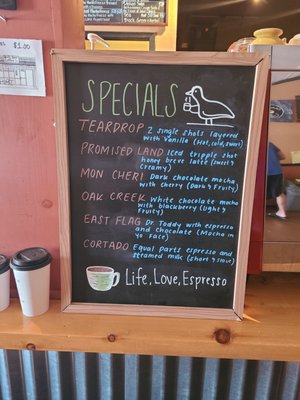 $1.00
SPECIALS
TEARDROP 2 single shots layered
with Vanilla (Hot, cold, sweet)
PROMISED LAND Iced tripple shot
honey breve latte (sweet &
Creamy)
MON CHERI Dark chocolate mocha
with Cherry (Dark & Fruity)
OAK CREEK White chocolate mocha
with blackberry (Light &
Fruity)
EAST FLAG Dr Toddy with espresso
and chocolate (Mocha in
yo Face)
CORTADO Equal parts espresso and
steamed milk (short & strong)
Life, Love, Espresso